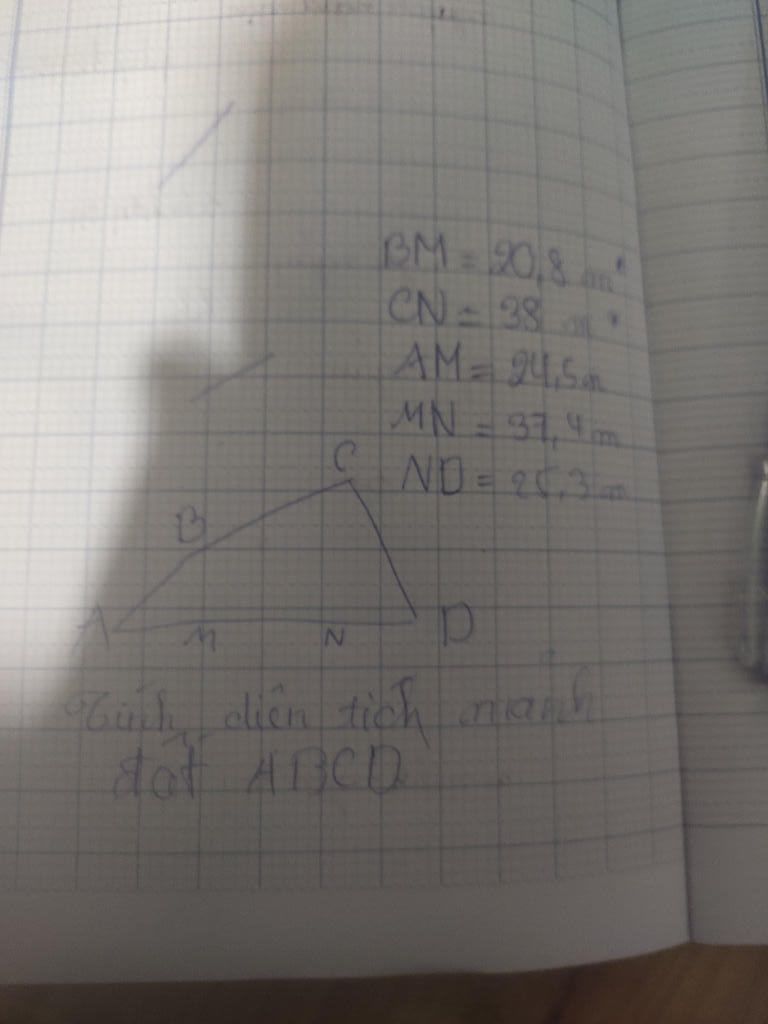 BM = 20,8 m
CN = 38 m
AM = 24,5m
MN = 37,4m
C
ND = 25,3 m
B
A
M
N
D
Tính diện tích mảnh
đất ABCD